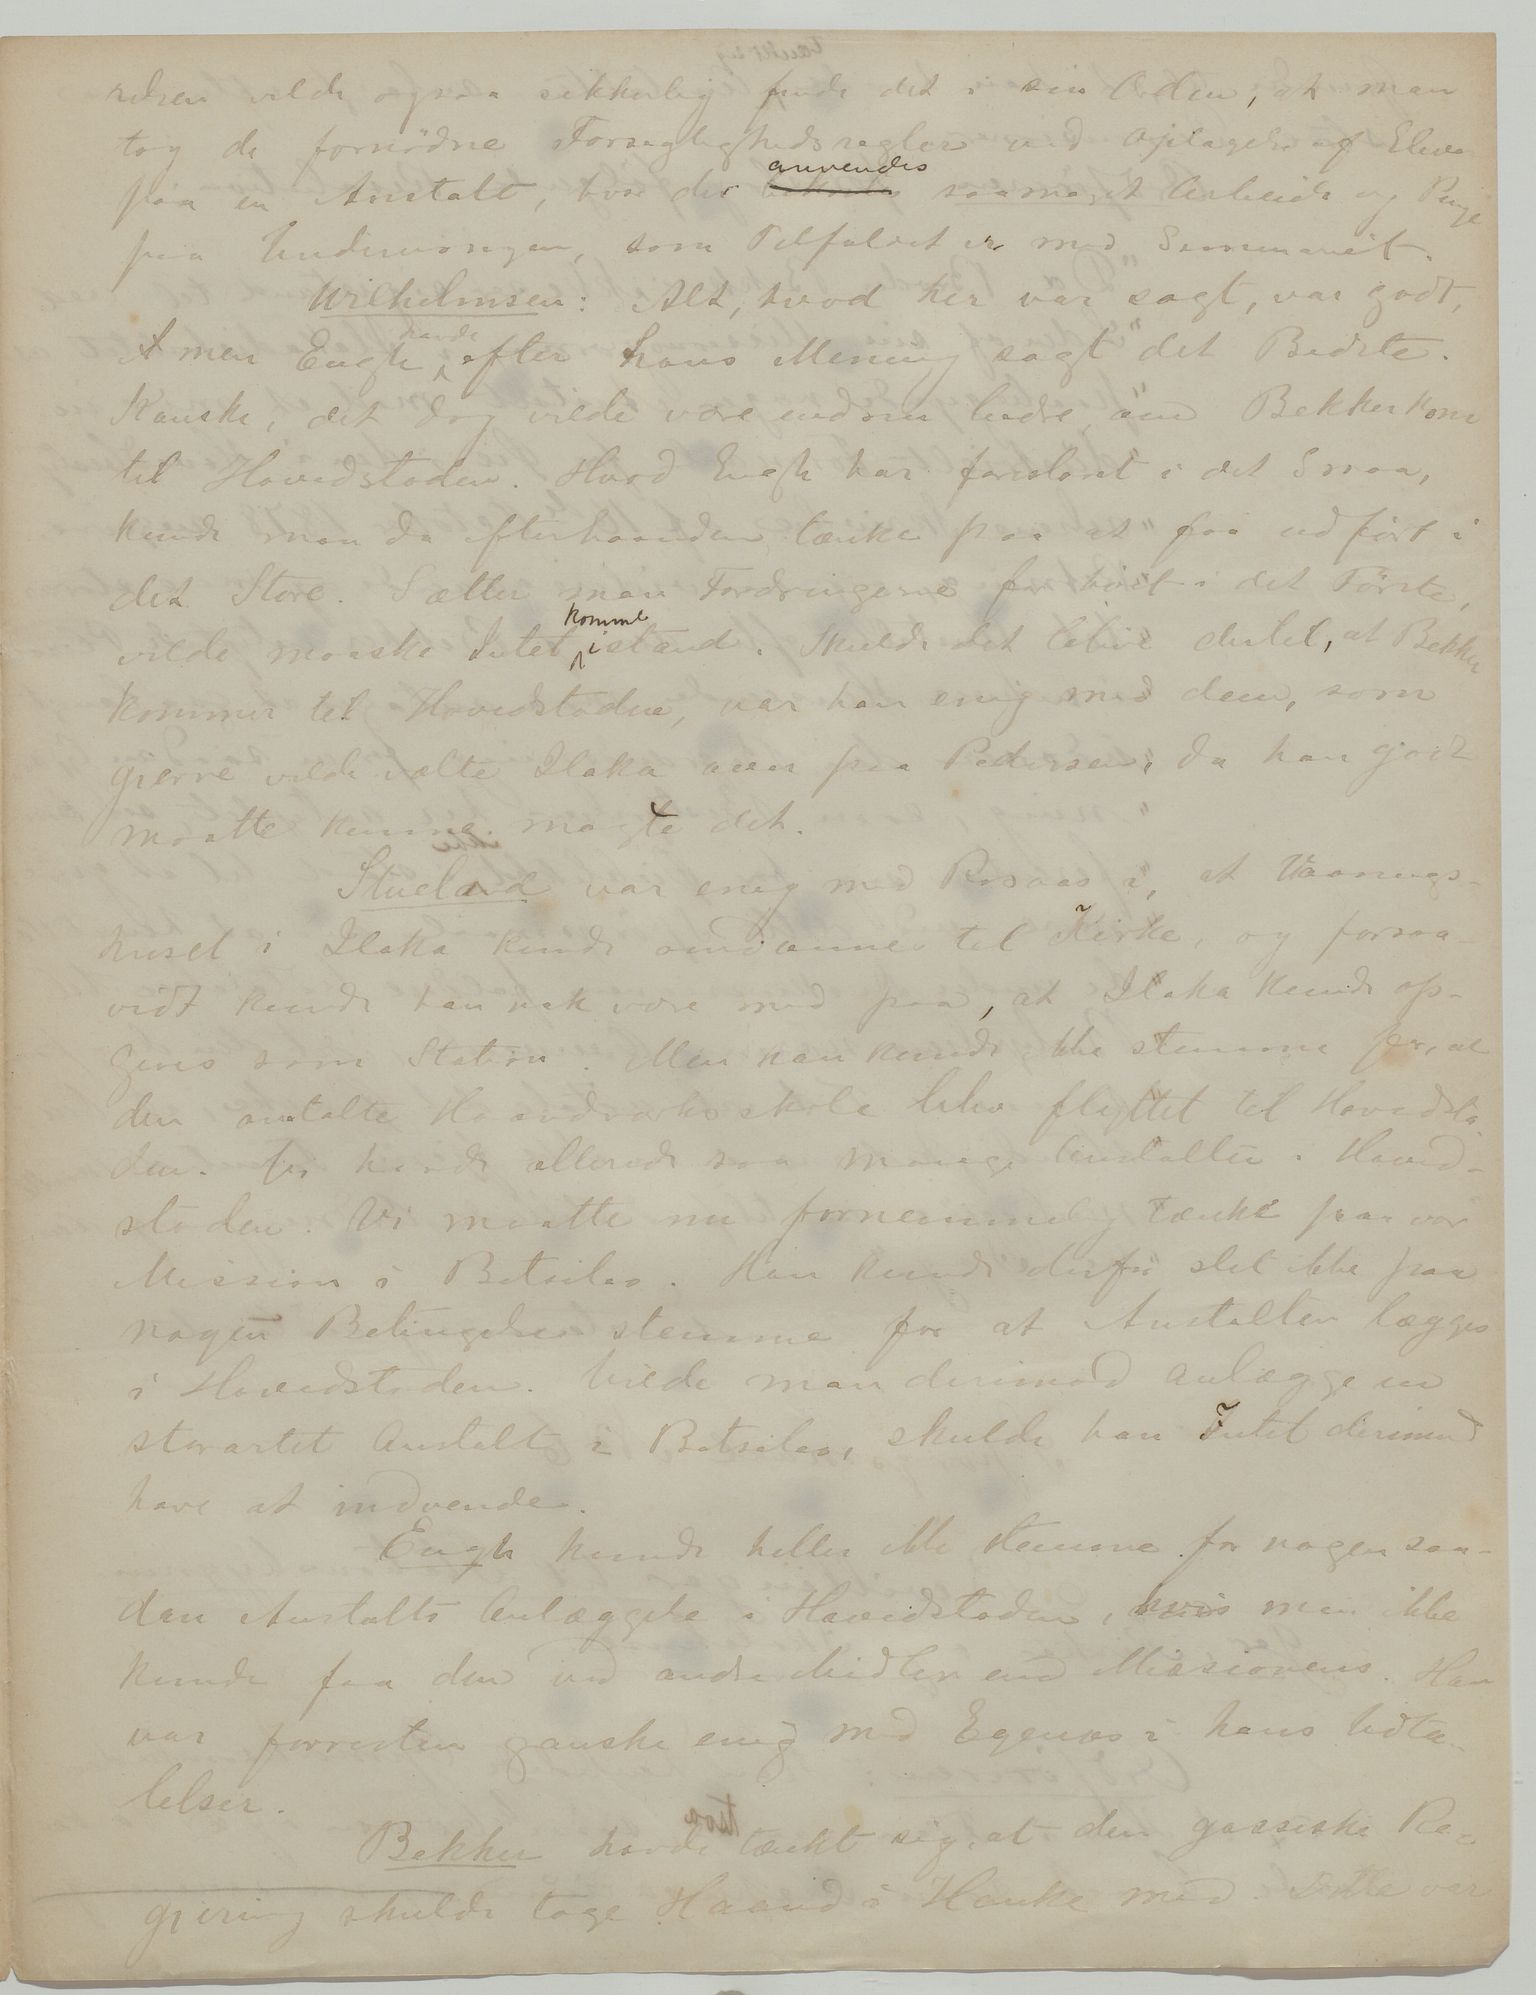 relsen vilde ogsaa sikkerlig finde det i sin Orden, at man
tog de fornödne Forsigtighedsregler ved Optagelse af Elever
paa en Anstalt, hvor der anvendes saameget Arbeide og Penge
paa Undervisningen, som Tilfældet er med Seminariet.
Wilhelmsen: Alt, hvad her var sagt, var godt,
men Engh havde efter hans Mening sagt det Bedste.
Kanske, det dog vilde være endnu bedre, om Bekker kom
til Hovedstaden. Hvad Engh har foreslaaet i det Smaa,
kunde man da efterhaanden tænke paa at faa udfört i
det Store. Sætter man Fordringerne for höit i det Förste,
vilde maaske Intet komme istand. Skulde det blive dertil, at Bekker
kommer til Hovedstaden, var han enig med dem, som
gjerne vilde vælte Ilaka over paa Pedersen, da han godt
maatte kunne magte det.
Stueland var enig med Rosaas i, at Vaanings-
huset i Ilaka kunde omdannes til Kirke, og forsaa-
vidt kunde han nok være med paa, at Ilaka kunde op-
gives som Station. Men han kunde ikke stemme for, at
den omtalte Haandværksskole blev flyttet til Hovedsta-
den. Vi havde allerede saa mange Anstalter i Hoved-
staden. Vi maatte nu fornemmelig tænke paa vor
Mission i Betsileo. Han kunde derfor slet ikke paa
nogen Betingelse stemme for at Anstalten lægges
i Hovedstaden. Vilde man derimod anlægge en
storartet Anstalt i Betsileo, skulde han Intet derimod
have at indvende.
Engh kunde heller ikke stemme for nogen saa-
dan Anstalts Anlæggelse i Hovedstaden, hvis man ikke
kunde faa den ved andre Midler end Missionens. Han
var forresten ganske enig med Egenæs i hans Udta-
lelser.
Bekker havde tænkt sig, at den gassiske Re-
gjering skulde tage Haand i Hanke med. Dette var